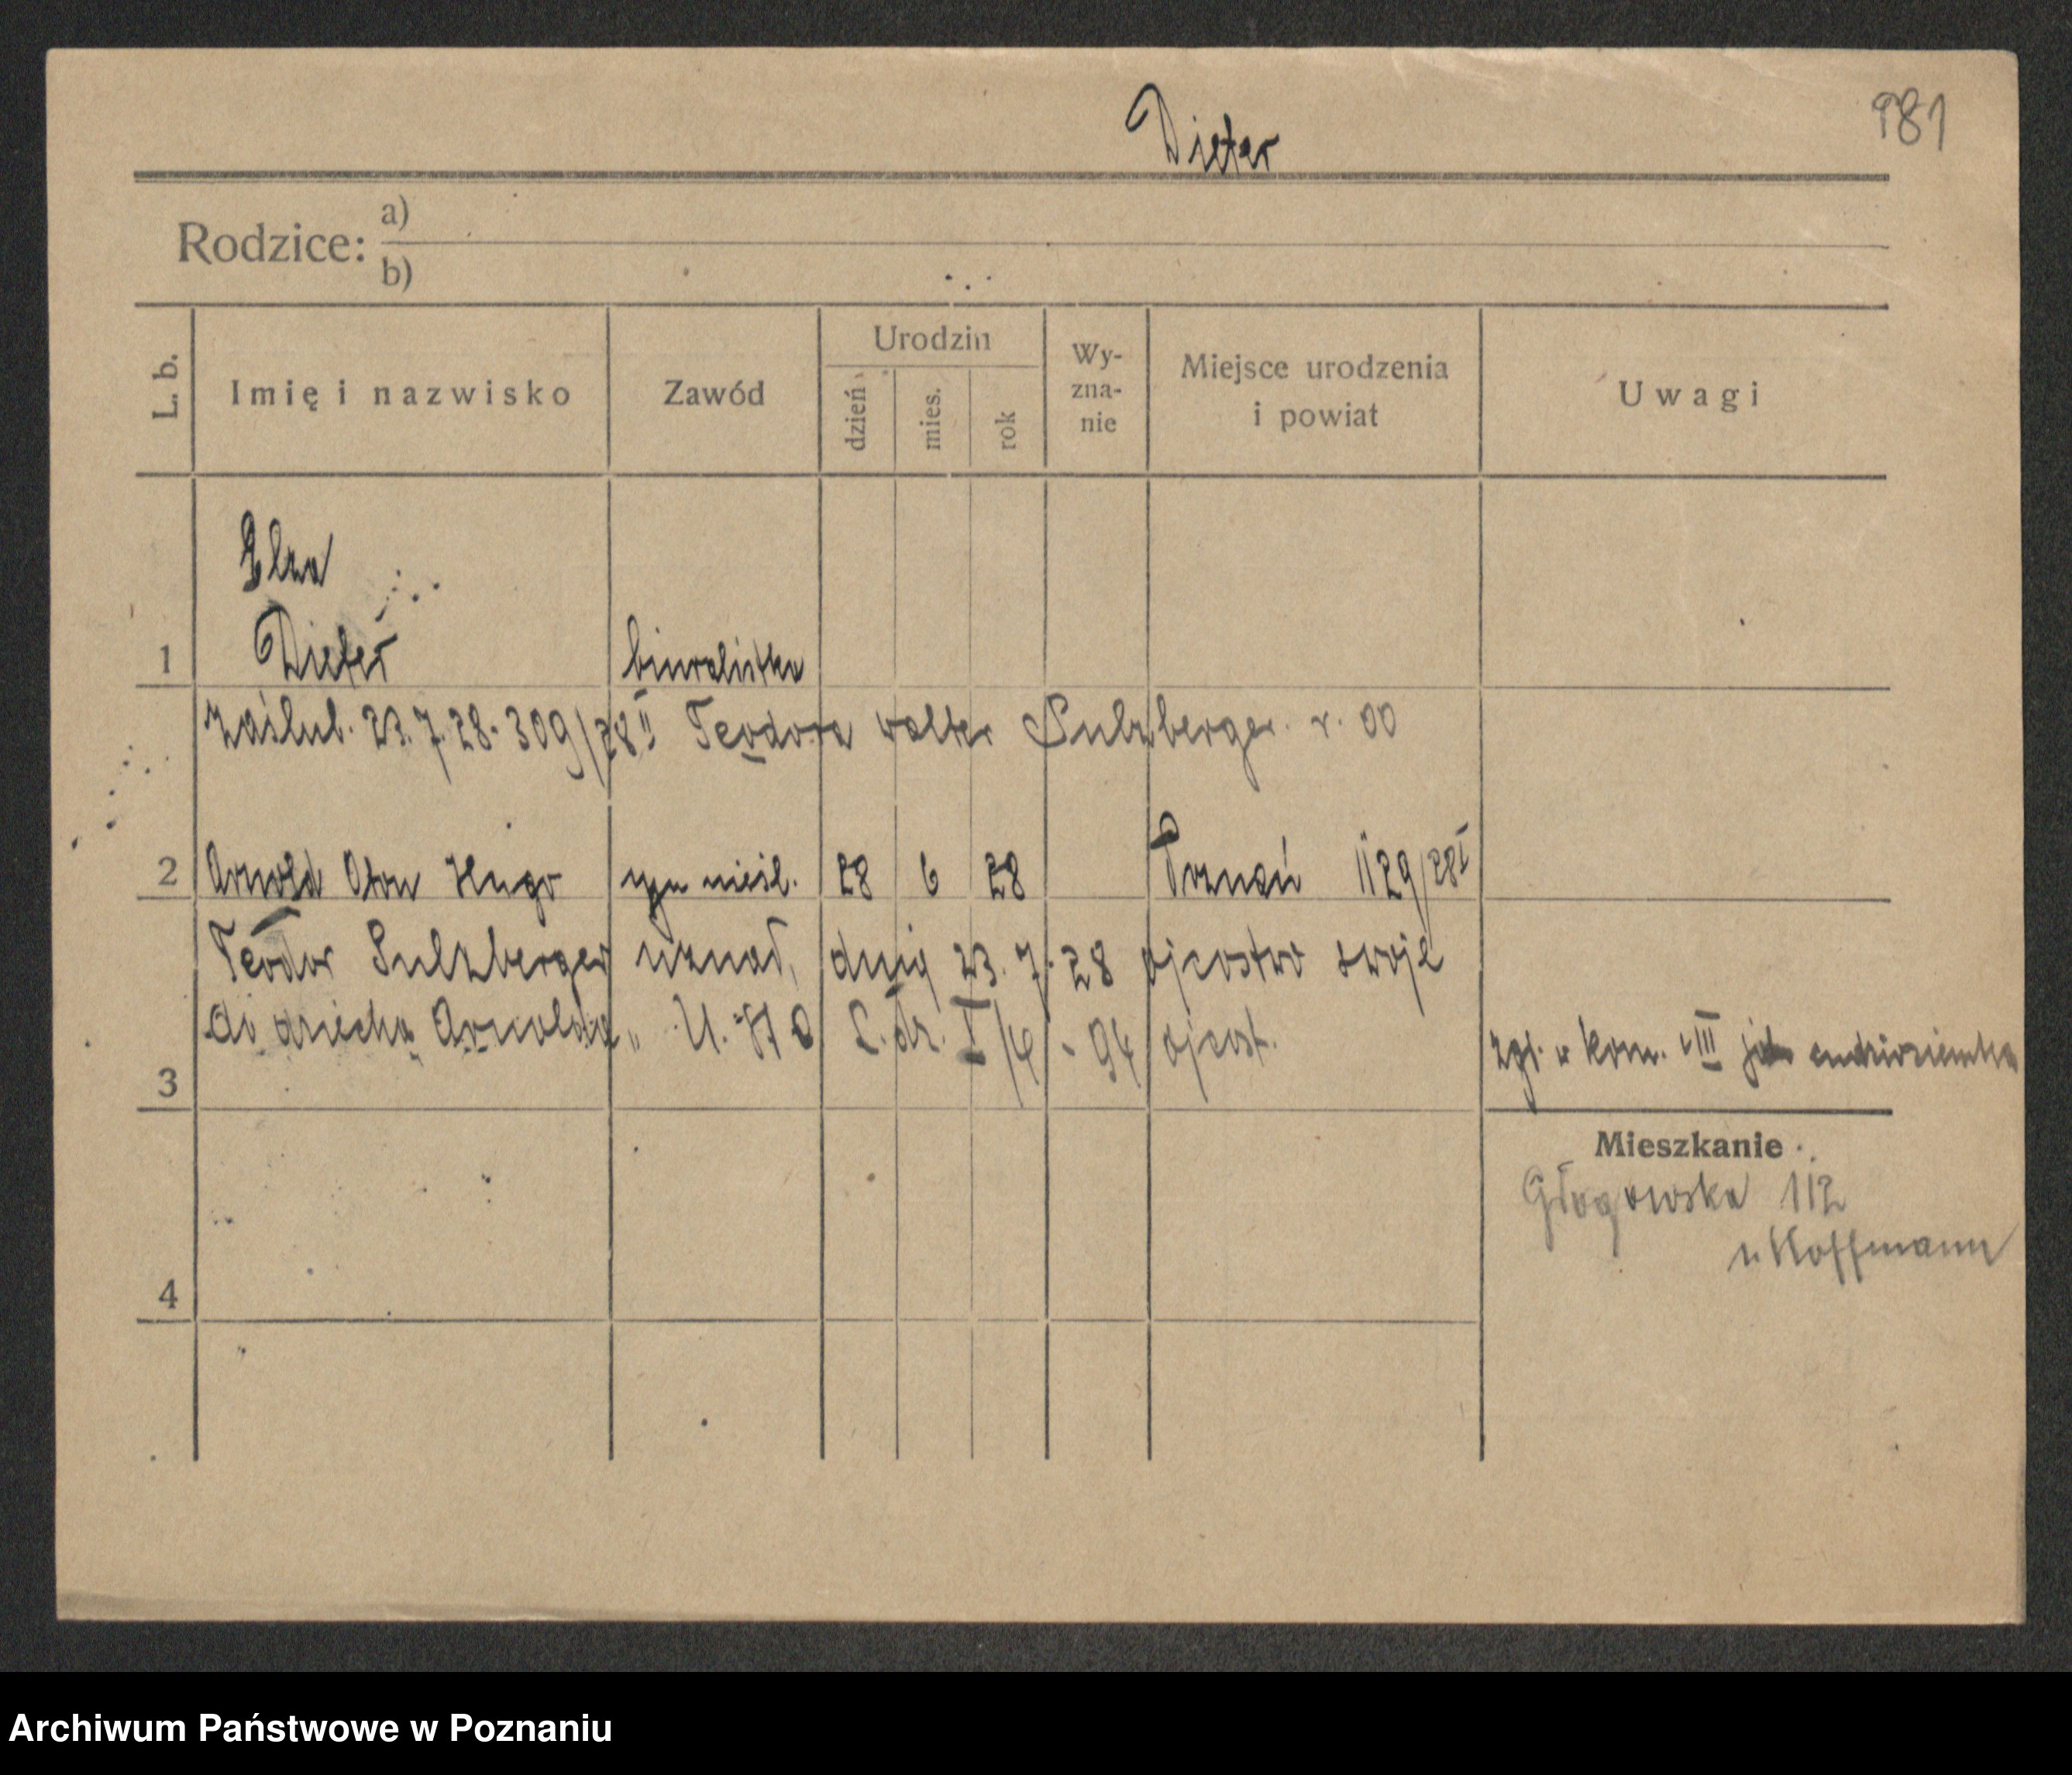 Dieter
981
Rodzice: a)
b)
L. b.
Imię i nazwisko
Zawód
Urodzin
dzień
mies.
rok
Wy-
zna-
nie
Miejsce urodzenia
i powiat
Uwagi
Elza
1 Dieter biuralistka
zaślub. 23.7.28. 309/28 II Teodora Walter Sulzberger. r. 00
2 Arnold Oton Hugo syn nieśl. 28 6 28 Poznań 1129/28 I
Teodor Sulzberger uznał, dnia 23.7.28 ojcostwo swoje
do dziecka Arnolda" U. St C L. dz. I/4 - 94 ojcost.
3 zgł. w kom. VIII jako cudzoziemka
Mieszkanie
Głogowska 112
u Hoffmann
4
Archiwum Państwowe w Poznaniu